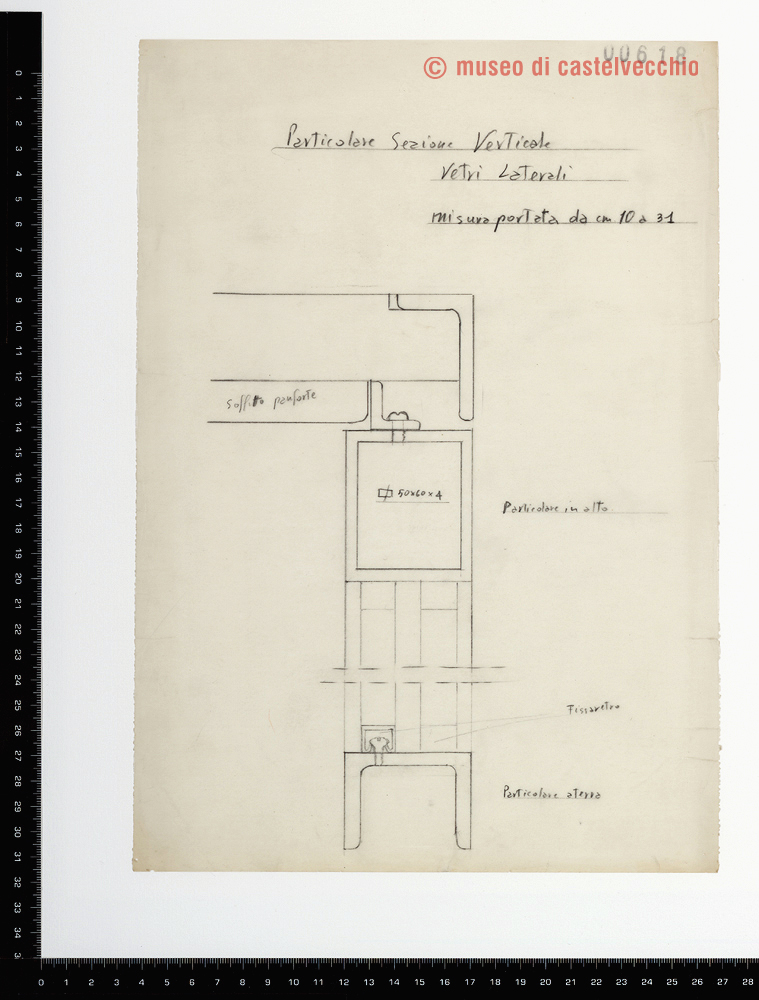 00618
© museo di castelvecchio
Particolare Sezione Verticale
Vetri Laterali
misura portata da cm 10 a 31
Soffitto panforte
50x60x4
Particolare in alto
Fissavetro
Particolare a terra
0 1 2 3 4 5 6 7 8 9 10 11 12 13 14 15 16 17 18 19 20 21 22 23 24 25 26 27 28 29 30 31 32 33 34 3
0 1 2 3 4 5 6 7 8 9 10 11 12 13 14 15 16 17 18 19 20 21 22 23 24 25 26 27 28